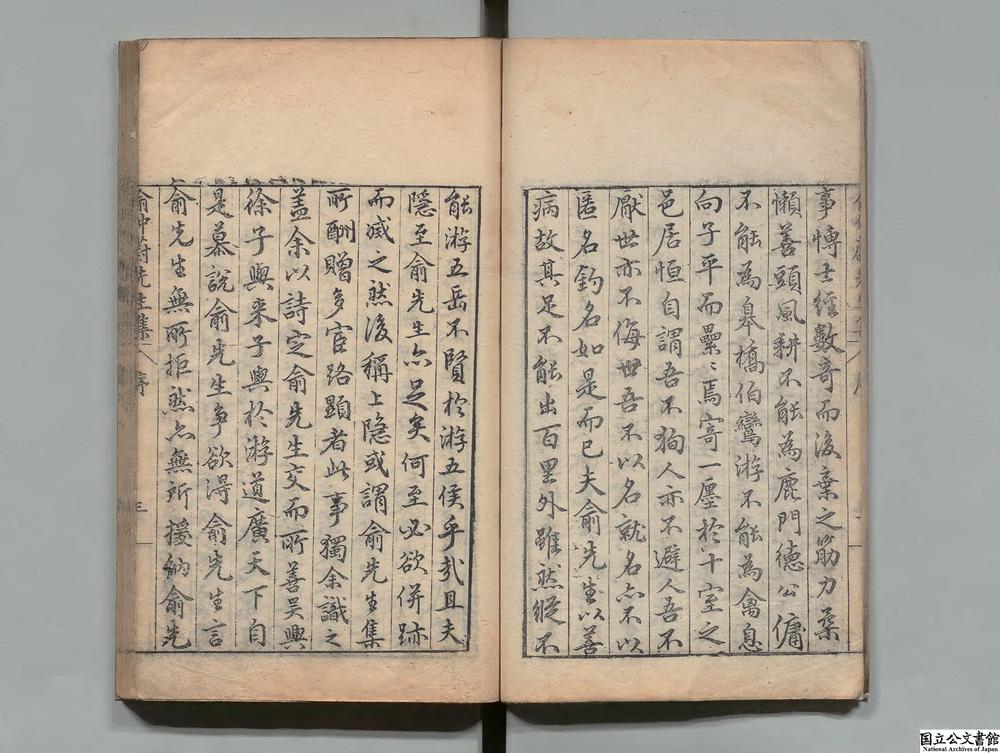 事愽士經數竒而後棄之筋力柔
懶善頭風耕不能為鹿門德公傭
不能為臯橋伯鸞游不能為禽息
向子平而纍〻焉寄一廛於十室之
邑居恒自謂吾不狥人亦不避人吾不
厭世亦不侮世吾不以名就名亦不以
匿名釣名如是而已夫俞先生以善
病故其足不能出百里外雖然縱不
能游五岳不賢於游五侯乎哉且夫
隱至俞先生亦足矣何至必欲併跡
而滅之然後稱上隱或謂俞先生集
所酬贈多宦路顯者此事獨余識之
盖余以詩定俞先生交而所善吳興
徐子與來子與於游道廣天下自
是慕說俞先生爭欲得俞先生言
俞先生無所拒然亦無所援納俞先
俞仲蔚先生集 序 三
国立公文書館
National Archives of Japan